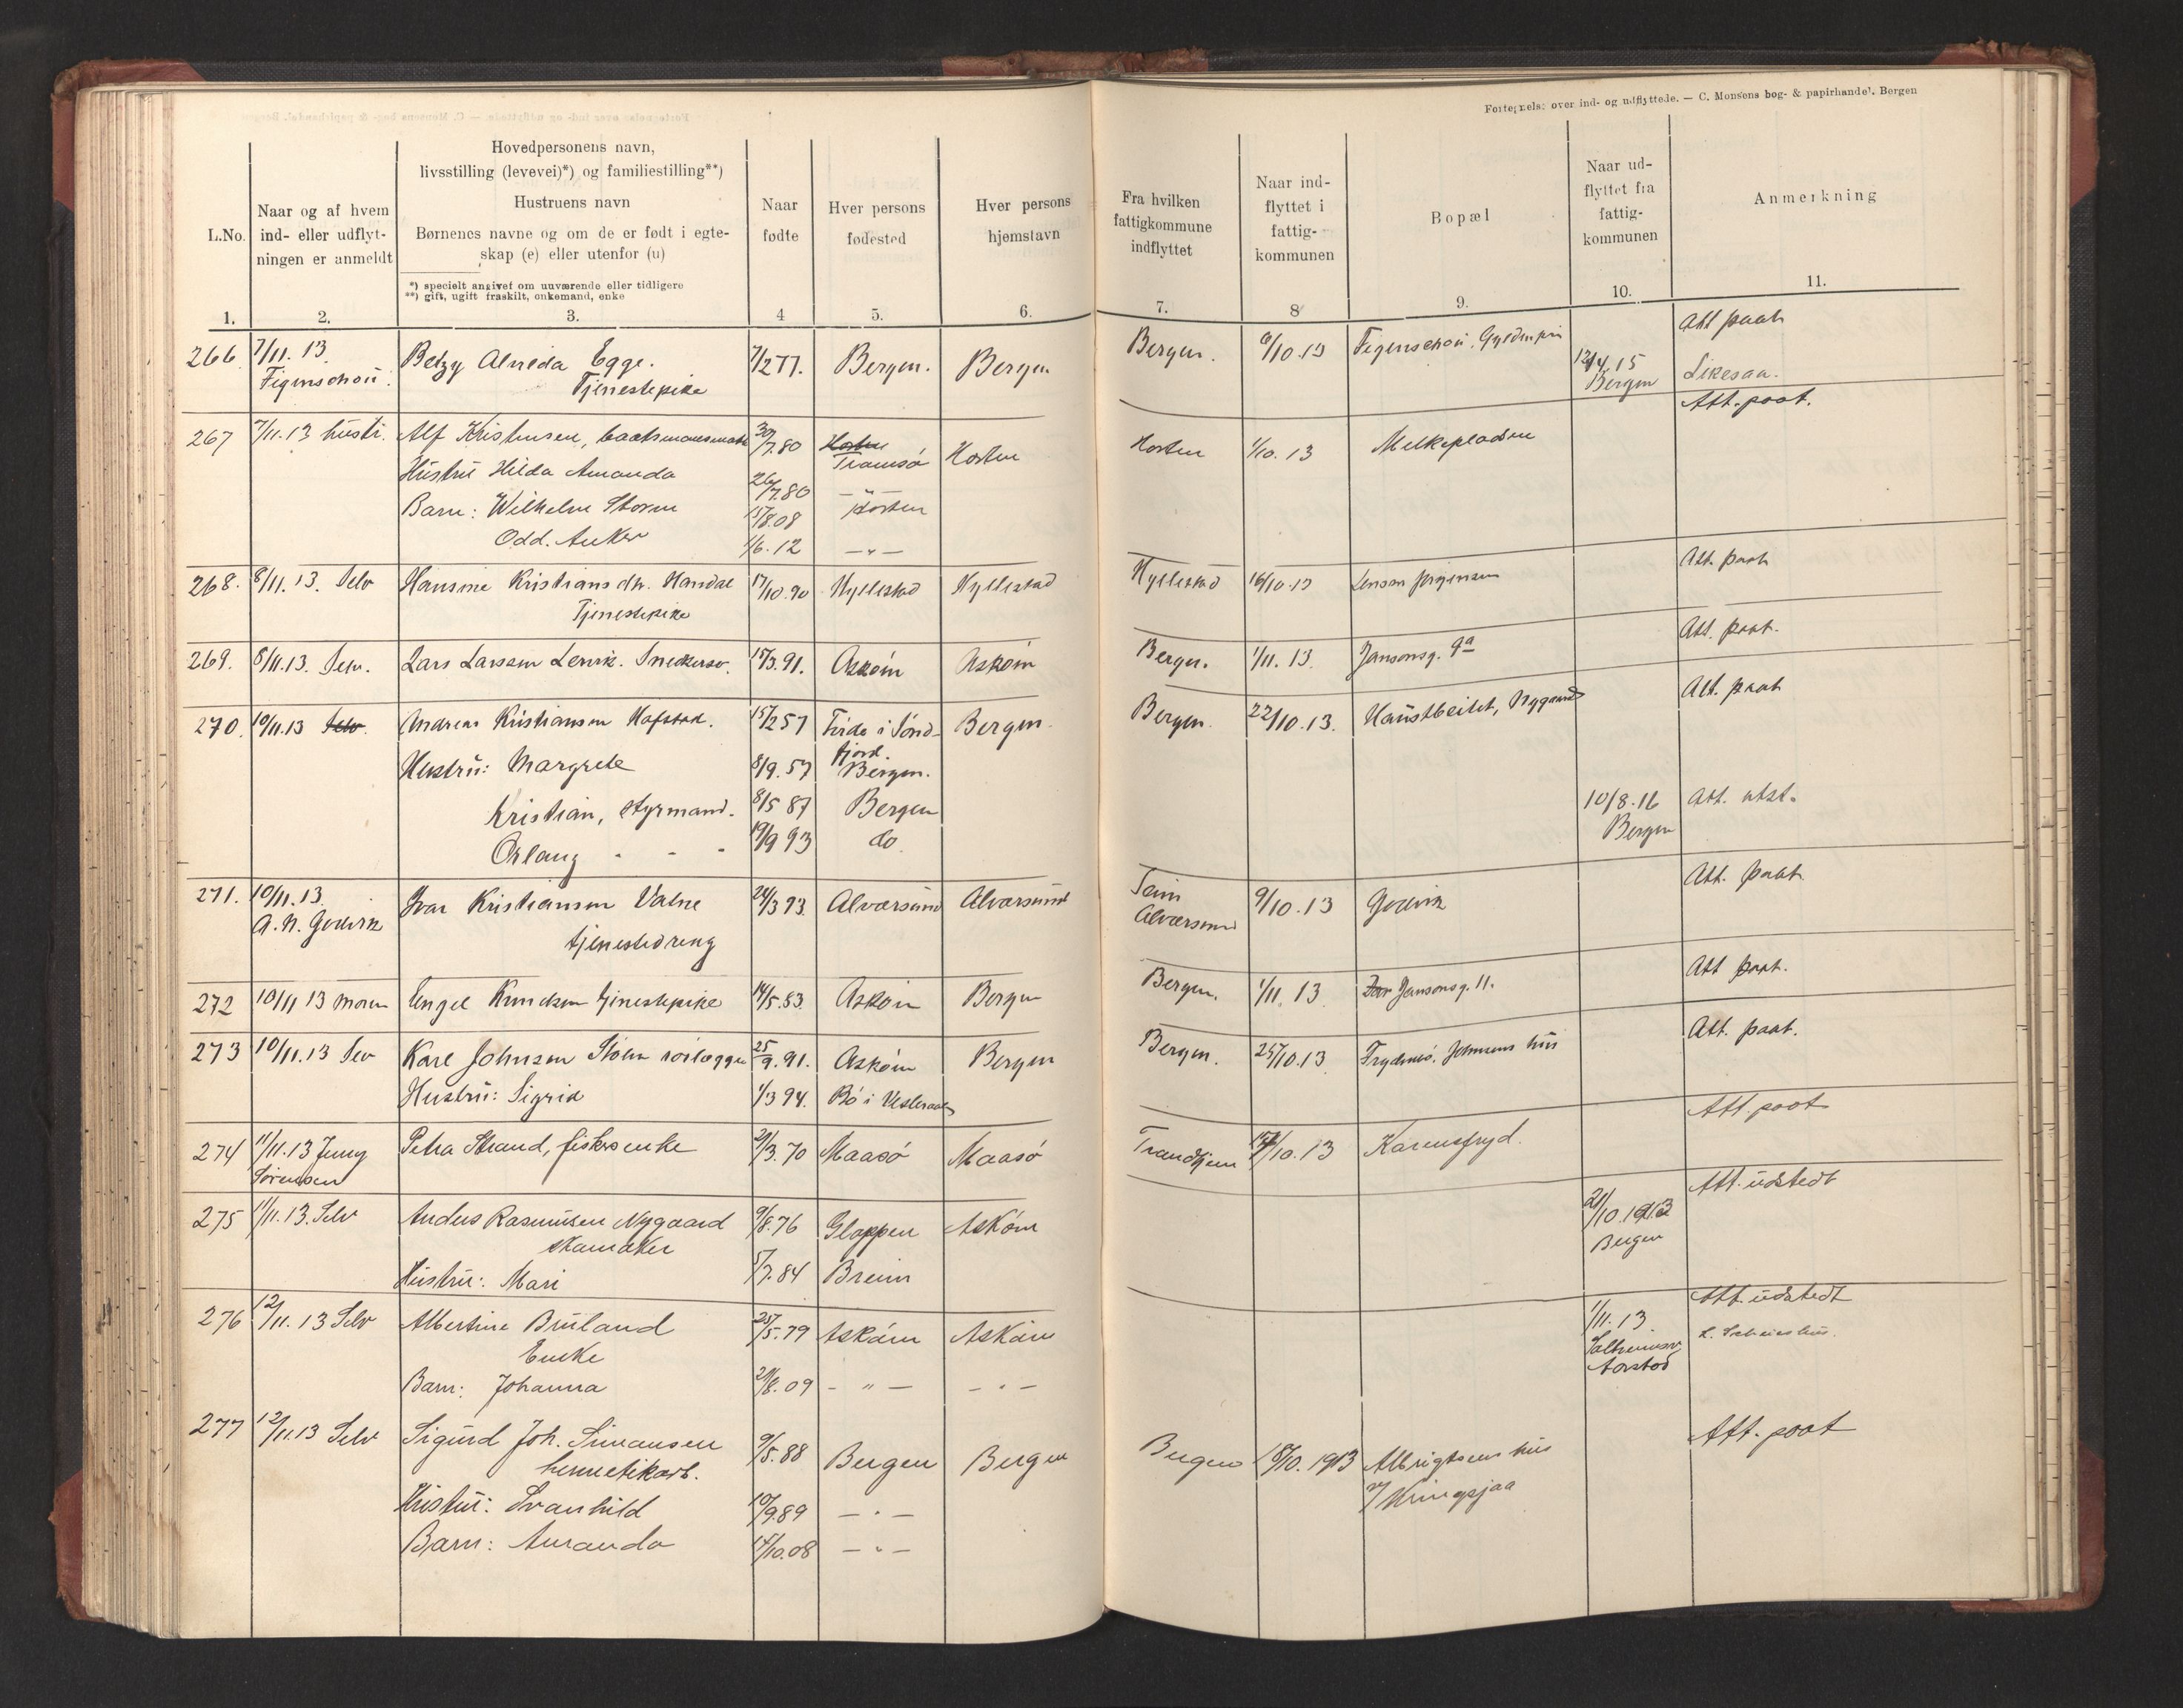 Fortegnelse over ind- og udflyttede. — C. Monsens bog- & papirhandel. Bergen
L.No.
Naar og af hvem
ind- eller udflyt-
ningen er anmeldt
Hovedpersonens navn,
livsstilling (levevei)*) og familiestilling**)
Hustruens navn
Børnenes navne og om de er født i egte-
skap (e) eller utenfor (u)
*) specielt angivet om nuværende eller tidligere
**) gift, ugift fraskilt, enkemand, enke
Naar
fødte
Hver persons
fødested
Hver persons
hjemstavn
Fra hvilken
fattigkommune
indflyttet
Naar ind-
flyttet i
fattig-
kommunen
Bopæl
Naar ud-
flyttet fra
fattig-
kommunen
Anmerkning
1. 2. 3. 4 5. 6. 7. 8 9. 10. 11.
266 7/11. 13. Betzy Alvida Egge. 7/2 77. Bergen. Bergen Bergen. 6/10.13 Figenschou, Att paat
Figenschou. Tjenestepike 12/4.15
Bergen Likesaa.
267 7/11.13 hustr. Alf Kristensen, baatsmandsmath 30/7.80 Horten Horten Horten 1/10. 13 Melkepladsen Att. paat.
Tromsø
Hustru Hilda Amanda 26/7.80 — " —
Barn: Wilhelm Storm 15/8.08 Horten
Odd. Anker 1/6.12 — " —
268. 8/11. 13. Selv Hansine Kristiansdtr. Handal 17/10.90 Hyllestad Hyllestad Hyllestad 16/10.13 Lensm Jørgensen Att. paat
Tjenestepike
269. 8/11.13. Selv. Lars Larssen Lervik. Snedkersv. 15/3.91. Askøin Askøin Bergen. 1/11. 13. Jansonsg. 9a Att. paat.
270. 10/11.13 Selv. Andreas Kristiansen Hafstad. 15/2 57 Førde i Sønd- Bergen. Bergen. 22/10.13. Haustbeitet, Nygaard Att. paat
fjord.
Hustru: Margrete 8/9.57 Bergen.
Kristian, styrmand. 8/5 87 Bergen 10/8.16 Att. utst.
Bergen
Aslaug " " " 19/9 93 do.
271. 10/11.13. Ivar Kristiansen Valne 24/3 93. Alværsund Alværsund 9/10.13 Godvik Att. paat
A. N. Godvik tjenestedreng Alværsund
272 10/11 13 moren Engel Knudsen tjenestepike 14/5.83. Askøin Bergen Bergen. 1/11. 13 Jansonsg. 11. Att paat.
273 10/11.13 Selv Karl Johnsen Stølen rørlægger 25/9.91. Askøin Bergen Bergen. 25/10.13. Johnsens hus Att. paat.
Hustru: Sigrid 1/3 94. Bø i Vesteraalen
274 11/11.13 Jenny Petra Strand, fiskerenke 29/3.70 Maasø Maasø Trondhjem 15/10.13 Karensfryd. Att. paat
Sørensen
275 11/11.13. Selv Anders Rasmussen Nygaard 9/8.76 Gloppen Askøin 21/10.1913 Att. udstedt
skomaker Bergen
Hustru: Mari 5/7.84 Breim
276 12/11.13 Selv Albertine Bruland 25/5.79 Askøin Askøin 1/11.13. Att. udstedt
Enke
Barn: Johanna 21/8.09 — " — — " —
277 12/11.13 Selv Sigurd Joh. Simonsen 9/5.88 Bergen Bergen Bergen 18/10. 1913 Albrigtsens hus Att. paat
hermetikarb. v/ Kringsjaa
Hustru: Svanhild 10/9.89 — " —
Barn: Amanda 14/10.08 — " —